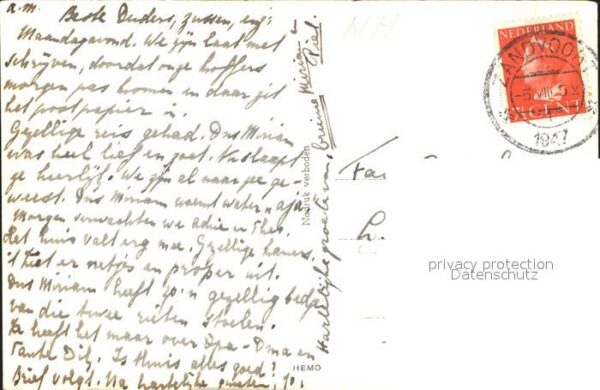 a.m. Beste Ouders, zussen, enz:
Maandagavond. We zijn laat met
schrijven, doordat onze koffers
morgen pas komen en daar zit
het postpapier in.
Gezellige reis gehad. Ons Miriam
was heel lief en zoet. Nu slaapt
ze heerlijk. We zijn al naar zee ge-
weest. Ons Miriam noemt water "aja"
Morgen verwachten we Adrie en Thea.
Het huis valt erg mee. Gezellige kamers.
't Ziet er netjes en proper uit.
Ons Miriam heeft zo'n gezellig bedje
van die twee rieten stoelen.
Ze heeft het maar over Opa - Oma en
Tante Dily. Is thuis alles goed?
Brief volgt. Na hartelijke groeten,
Hartelijke groeten van, Miriam
Piet.
Nadruk verboden
HEMO
NEDERLAND
CENT
ZANDVOORT
1947
privacy protection
Datenschutz